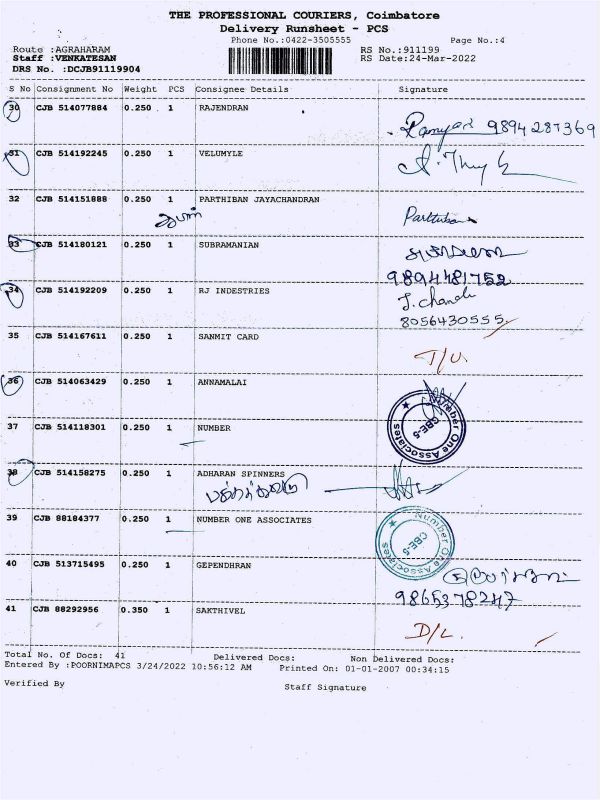 THE PROFESSIONAL COURIERS, Coimbatore
Delivery Runsheet - PCS
Phone No.:0422-3505555 Page No.:4
Route :AGRAHARAM RS No.:911199
Staff :VENKATESAN RS Date:24-Mar-2022
DRS No. :DCJB91119904
S No Consignment No Weight PCS Consignee Details Signature
30 CJB 514077884 0.250 1 RAJENDRAN
9894287369
31 CJB 514192245 0.250 1 VELUMYLE
32 CJB 514151888 0.250 1 PARTHIBAN JAYACHANDRAN
Parthiban
33 CJB 514180121 0.250 1 SUBRAMANIAN
9894481752
34 CJB 514192209 0.250 1 RJ INDESTRIES
J. Chandu
8056430555
35 CJB 514167611 0.250 1 SANMIT CARD
T/U.
36 CJB 514063429 0.250 1 ANNAMALAI
37 CJB 514118301 0.250 1 NUMBER
Number One Associates
CBE-5
38 CJB 514158275 0.250 1 ADHARAN SPINNERS
39 CJB 88184377 0.250 1 NUMBER ONE ASSOCIATES
Number One Associates
CBE-5
40 CJB 513715495 0.250 1 GEPENDHRAN
9865378247
41 CJB 88292956 0.350 1 SAKTHIVEL
D/L.
Total No. Of Docs: 41 Delivered Docs: Non Delivered Docs:
Entered By :POORNIMAPCS 3/24/2022 10:56:12 AM Printed On: 01-01-2007 00:34:15
Verified By Staff Signature